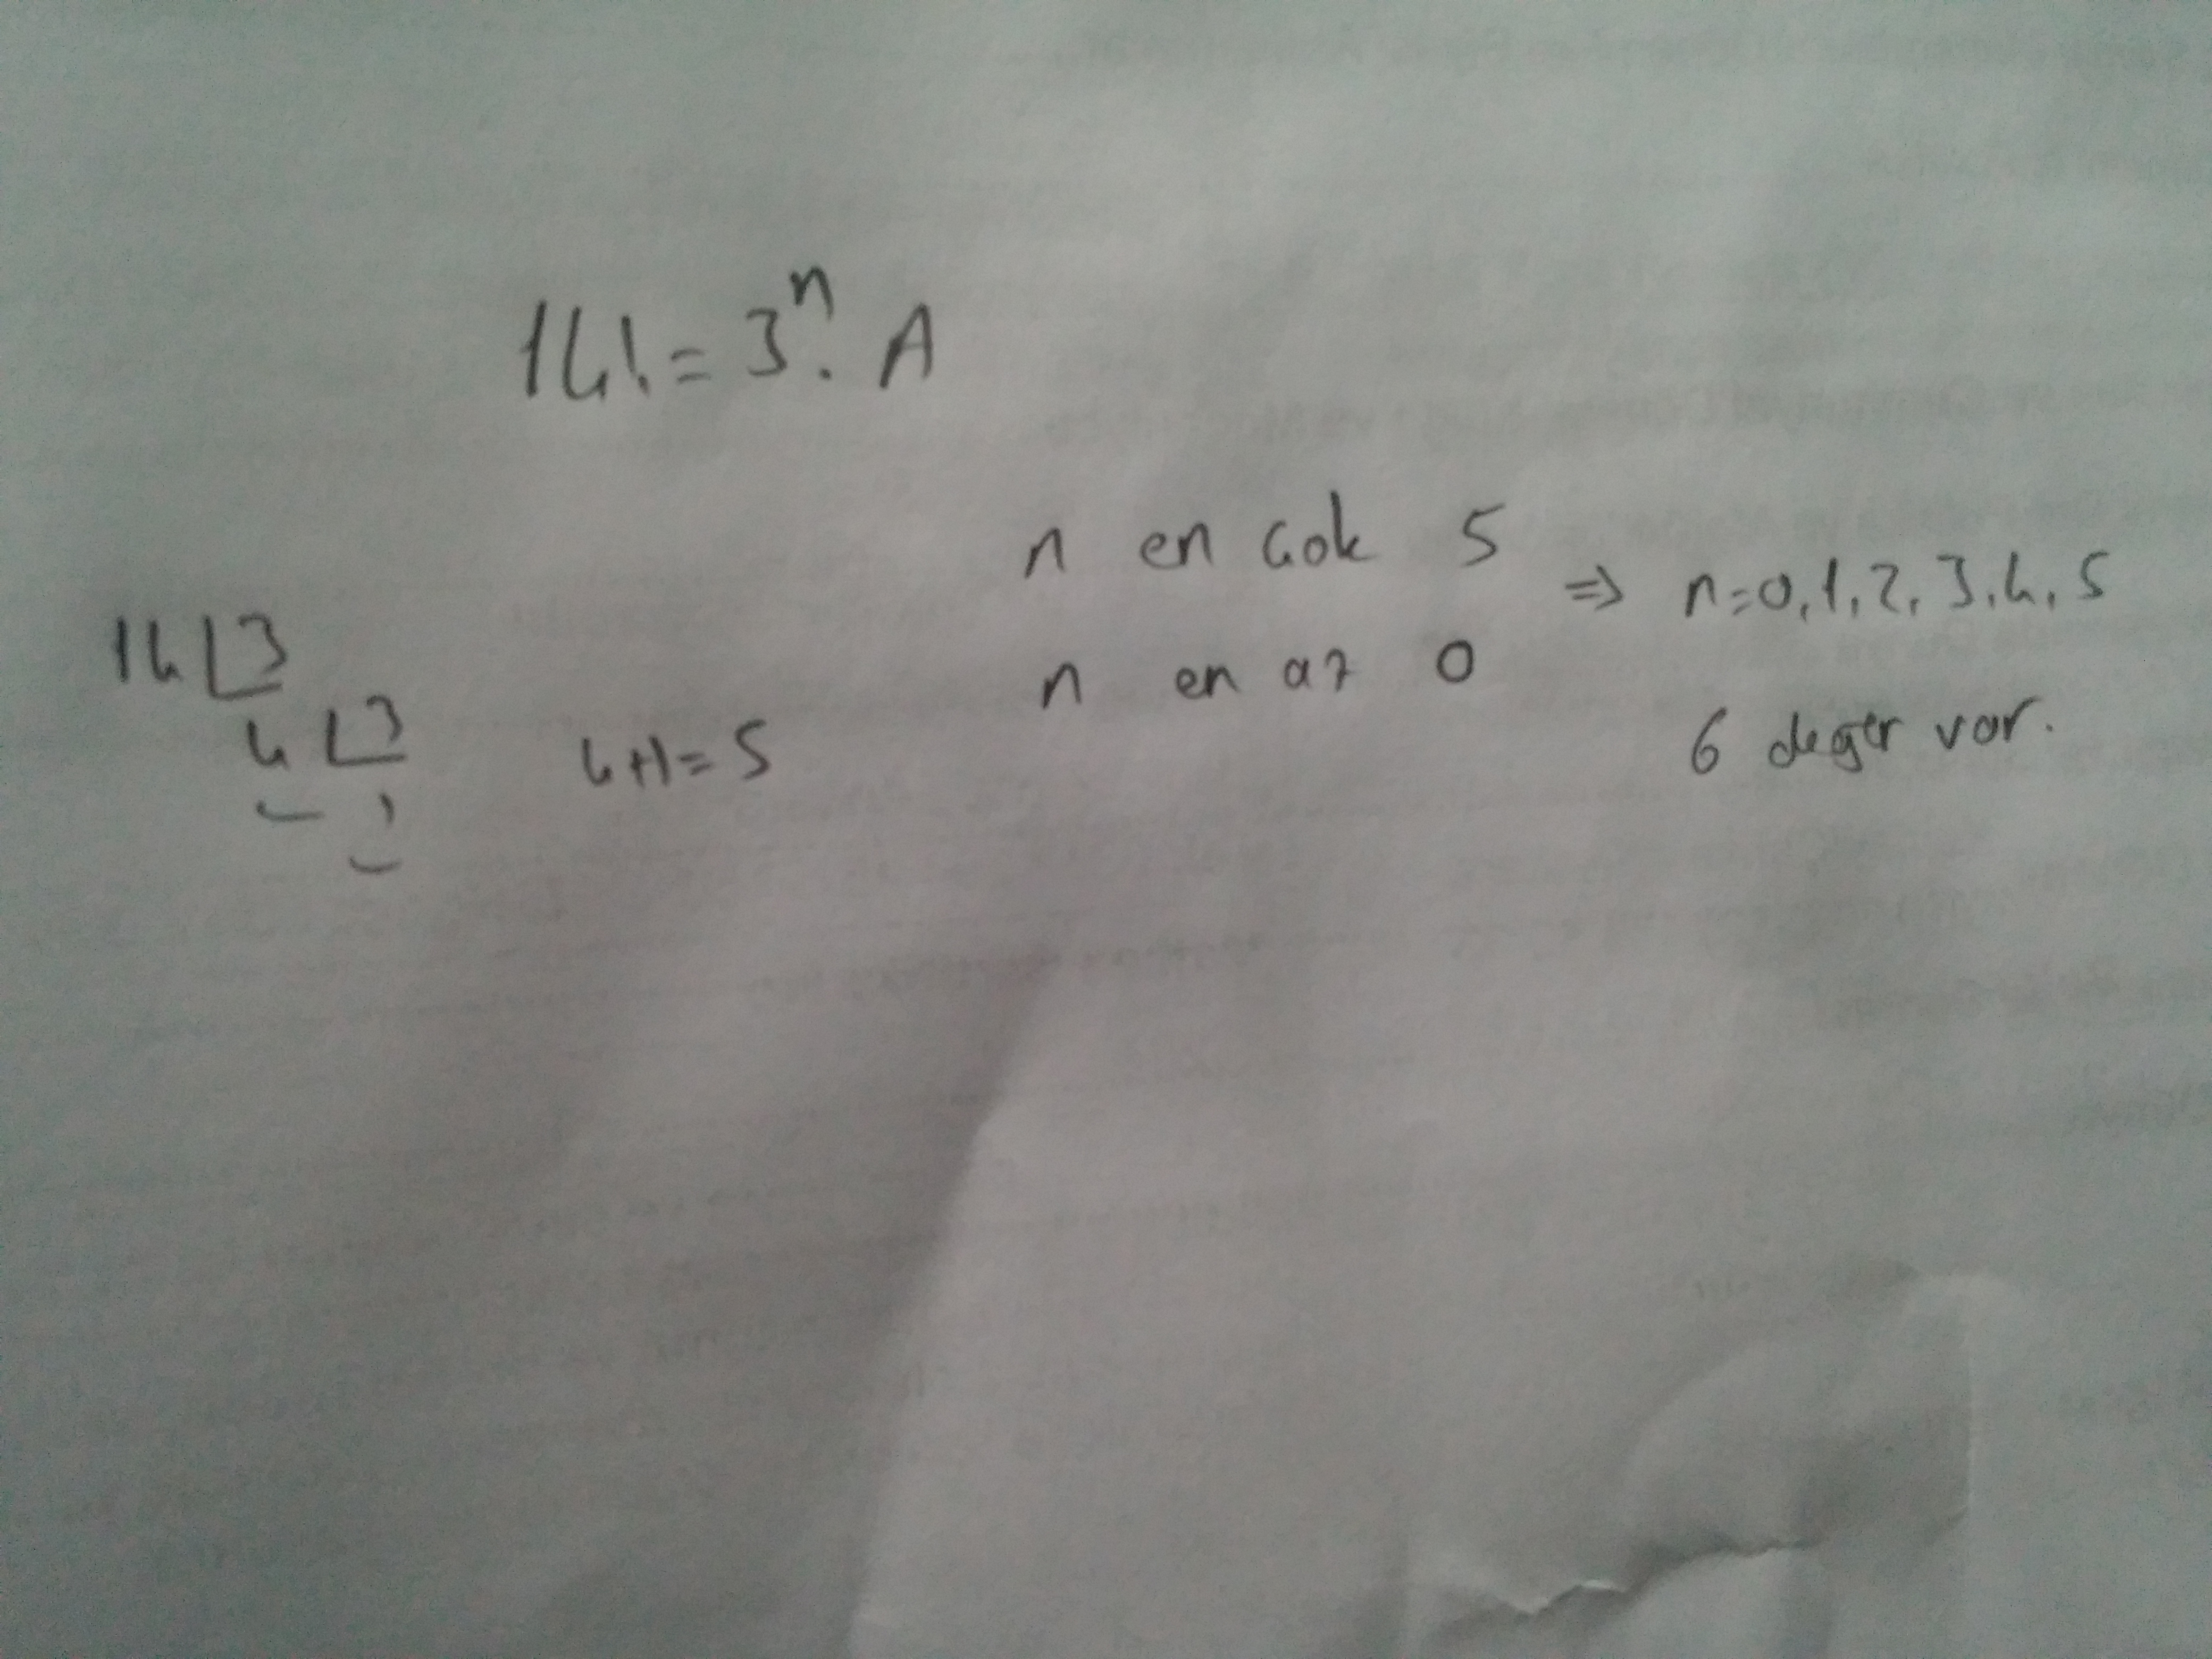 14! = 3ⁿ. A
n en çok 5
⇒ n=0,1,2,3,4,5
14 3
n en az 0
4 3
4+1=5
6 değer var.
1